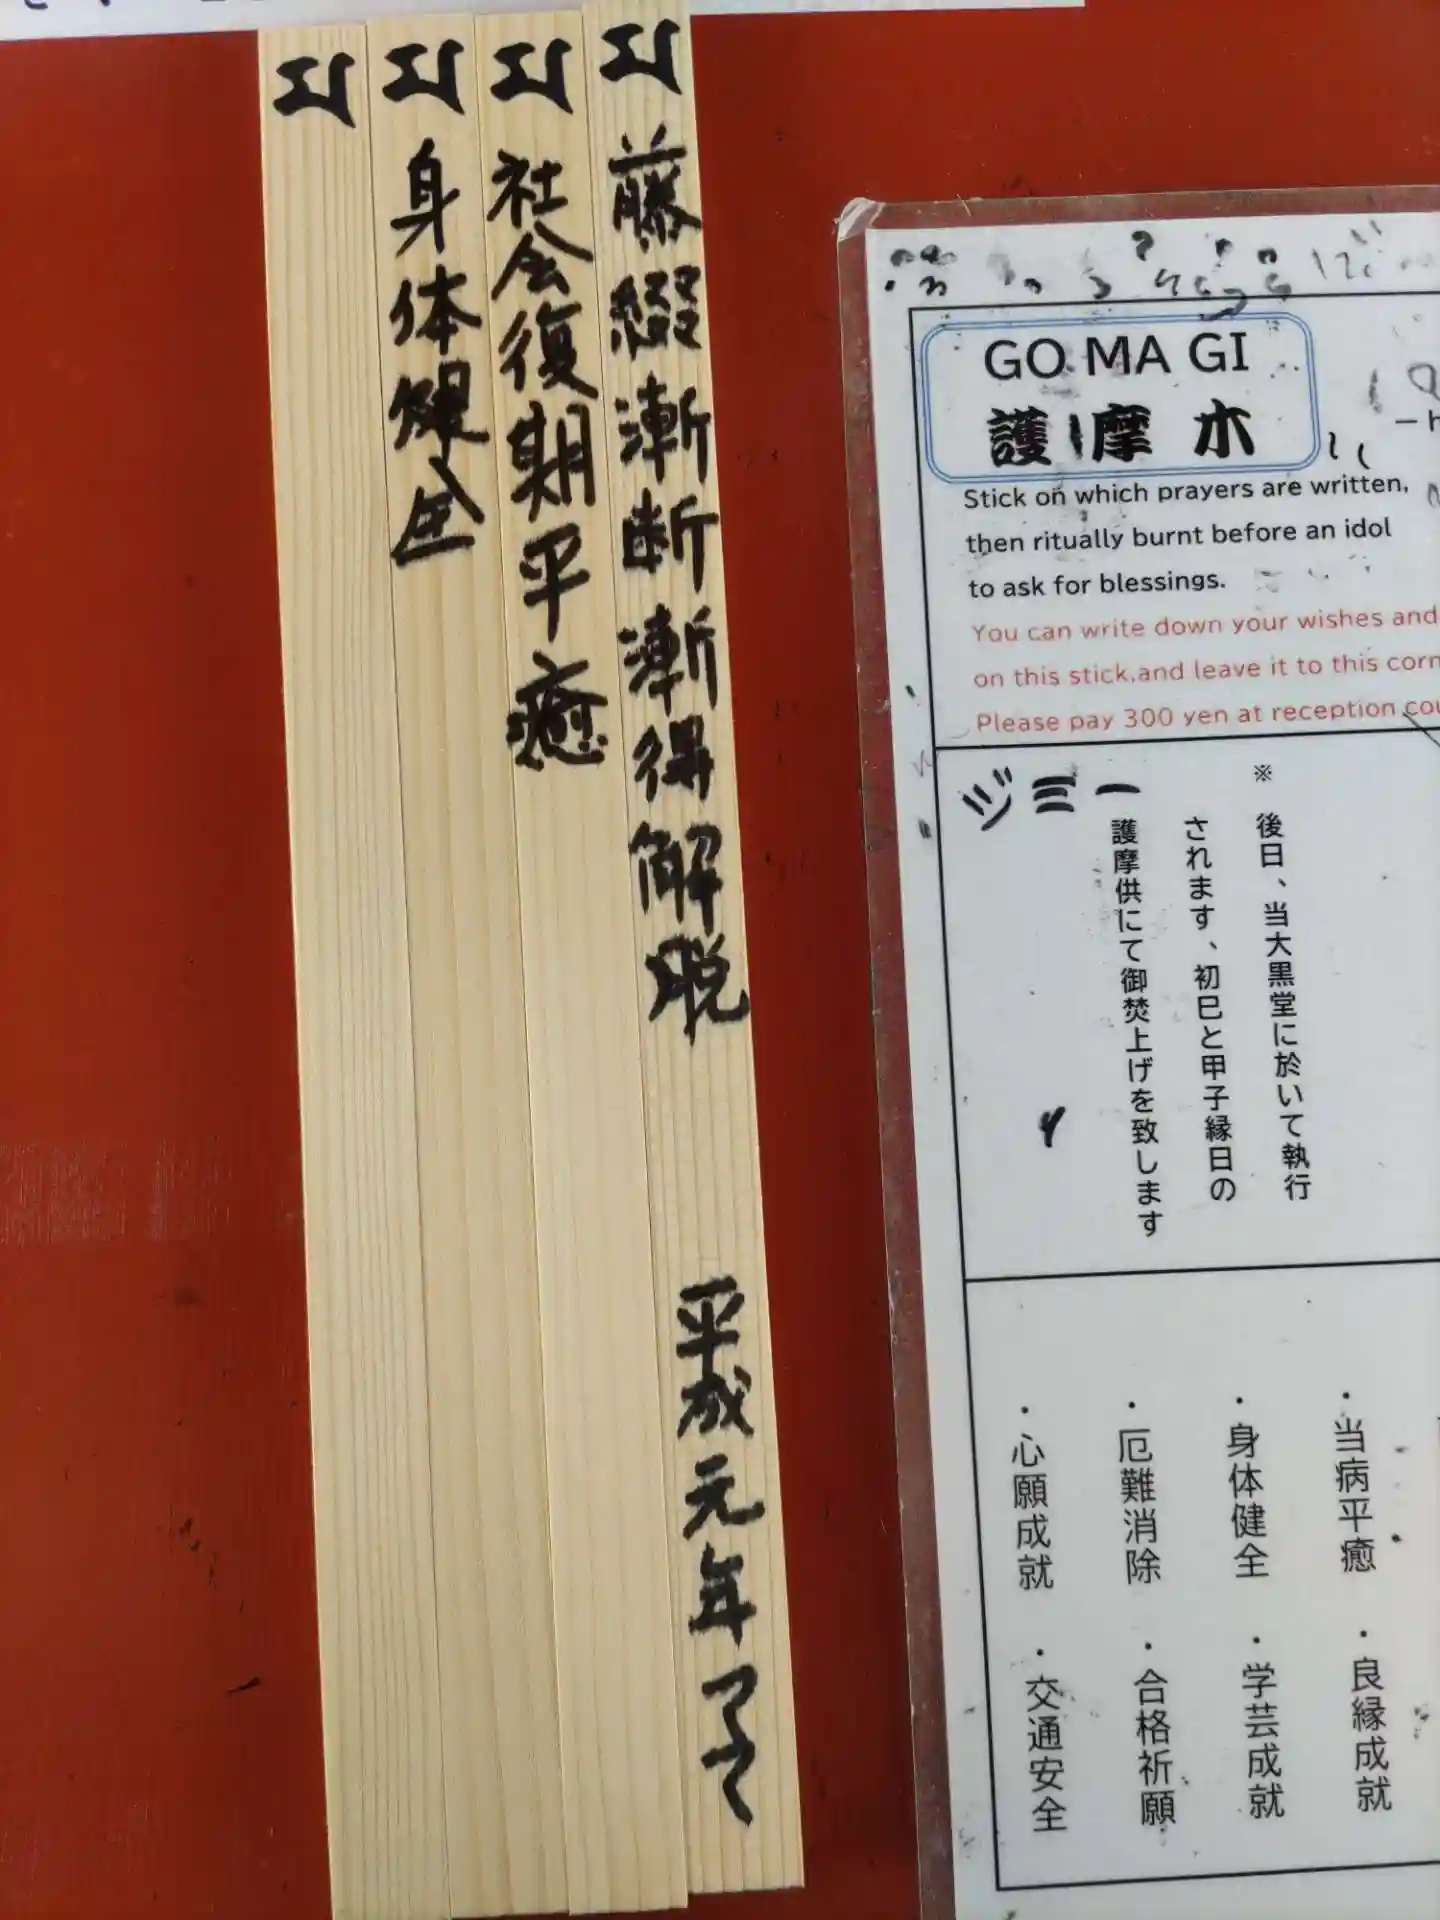 藤綴漸断漸得解脱 平成元年
社会復期平癒
身体健全
GO MA GI
護摩木
Stick on which prayers are written,
then ritually burnt before an idol
to ask for blessings.
You can write down your wishes and
on this stick,and leave it to this
Please pay 300 yen at reception
※ 後日、当大黒堂に於いて執行
されます、初巳と甲子縁日の
護摩供にて御焚上げを致します
ジミー
・当病平癒 ・良縁成就
・身体健全 ・学芸成就
・厄難消除 ・合格祈願
・心願成就 ・交通安全